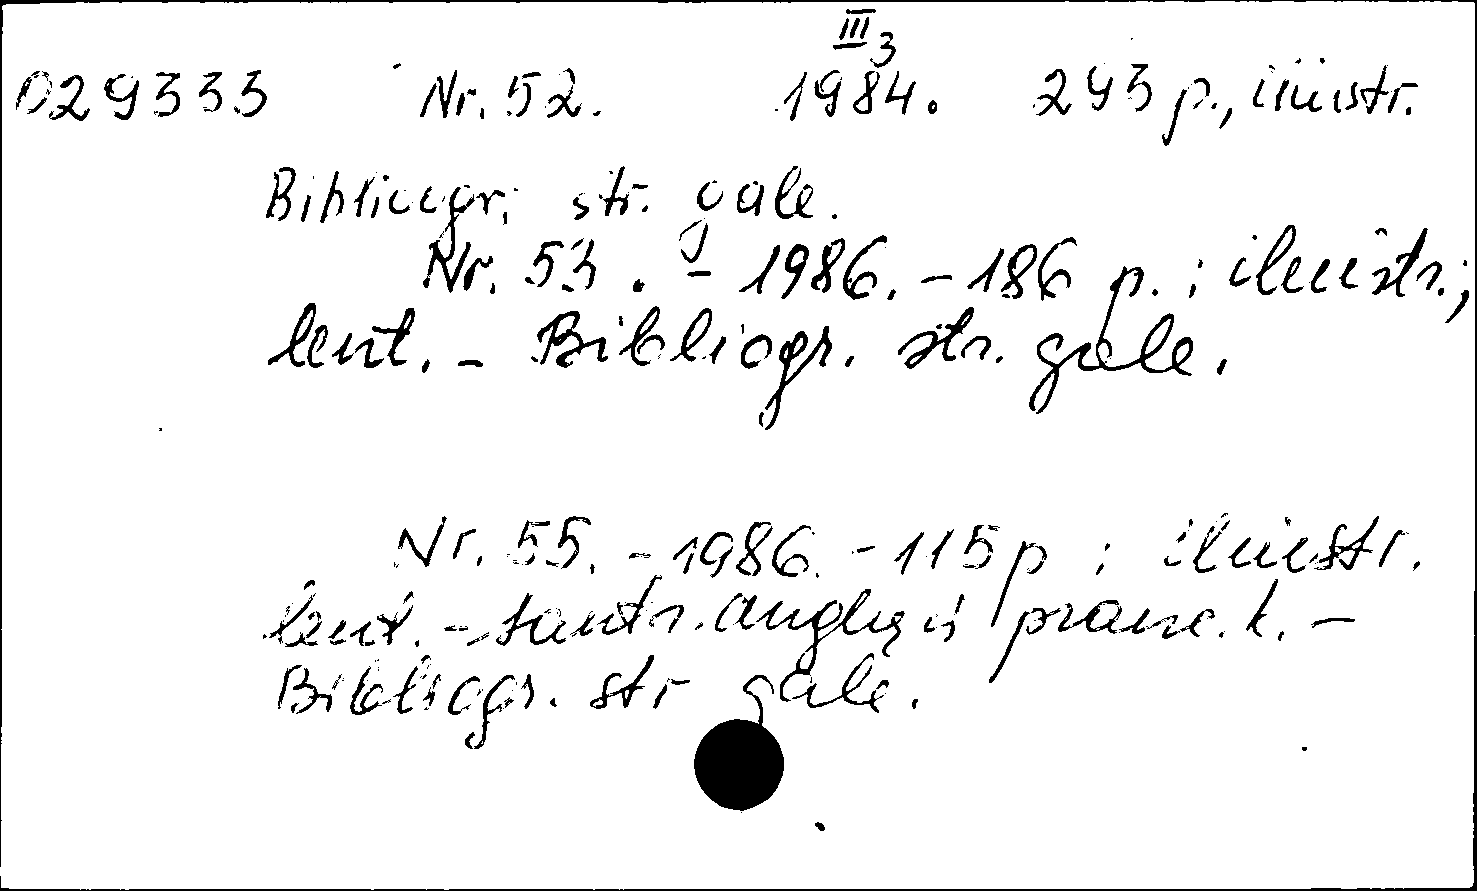 III 3
029333 Nr. 52. 1984. 293 p., iliustr.
Bibliogr. str. gale.
Nr. 53. - 1986. - 186 p. : iliustr.,
lent. - Bibliogr. str. gale.
Nr. 55. - 1986. - 115 p : iliustr.
lent. - Santr. anglų ir pranc. k. -
Bibliogr. str gale.